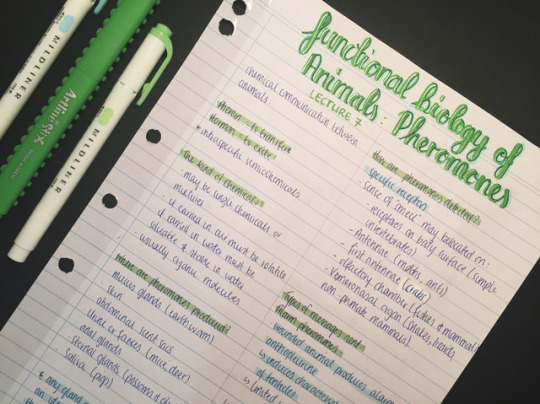 MILDLINER
Artline Stix
MILDLINER
functional biology of
Animals: Pheromones
LECTURE 7
chemical communication between
animals.
Pheron - to transfer
Hormon - to excite
* intraspecific semiochemicals
The kind of chemicals?
- may be single chemicals or
mixtures
- if carried in air must be volatile
- if carried in water must be
soluable & stable in water
- usually organic molecules
Where are pheromones produced?
- mucus glands (earthworm)
- skin
- abdominal scent sacs
- Urine & faeces (mice, deer)
- anal glands
- Sternal glands
- Saliva (pigs)
* any gland
How are pheromones detected?
specific receptors
Sense of "smell" may be located on:
- receptors on body surface (simple
invertebrates)
- Antennae (moths, ants)
- first antennae (crabs)
- olfactory chamber (fishes & mammals)
- Vomeronasal organ (snakes, lizards,
non-primate mammals)
Types of messages sent
Alarm pheromones
wounded animal produces alarm
anthopleurine
↳ induces characteris
of tentacles
↳ limited